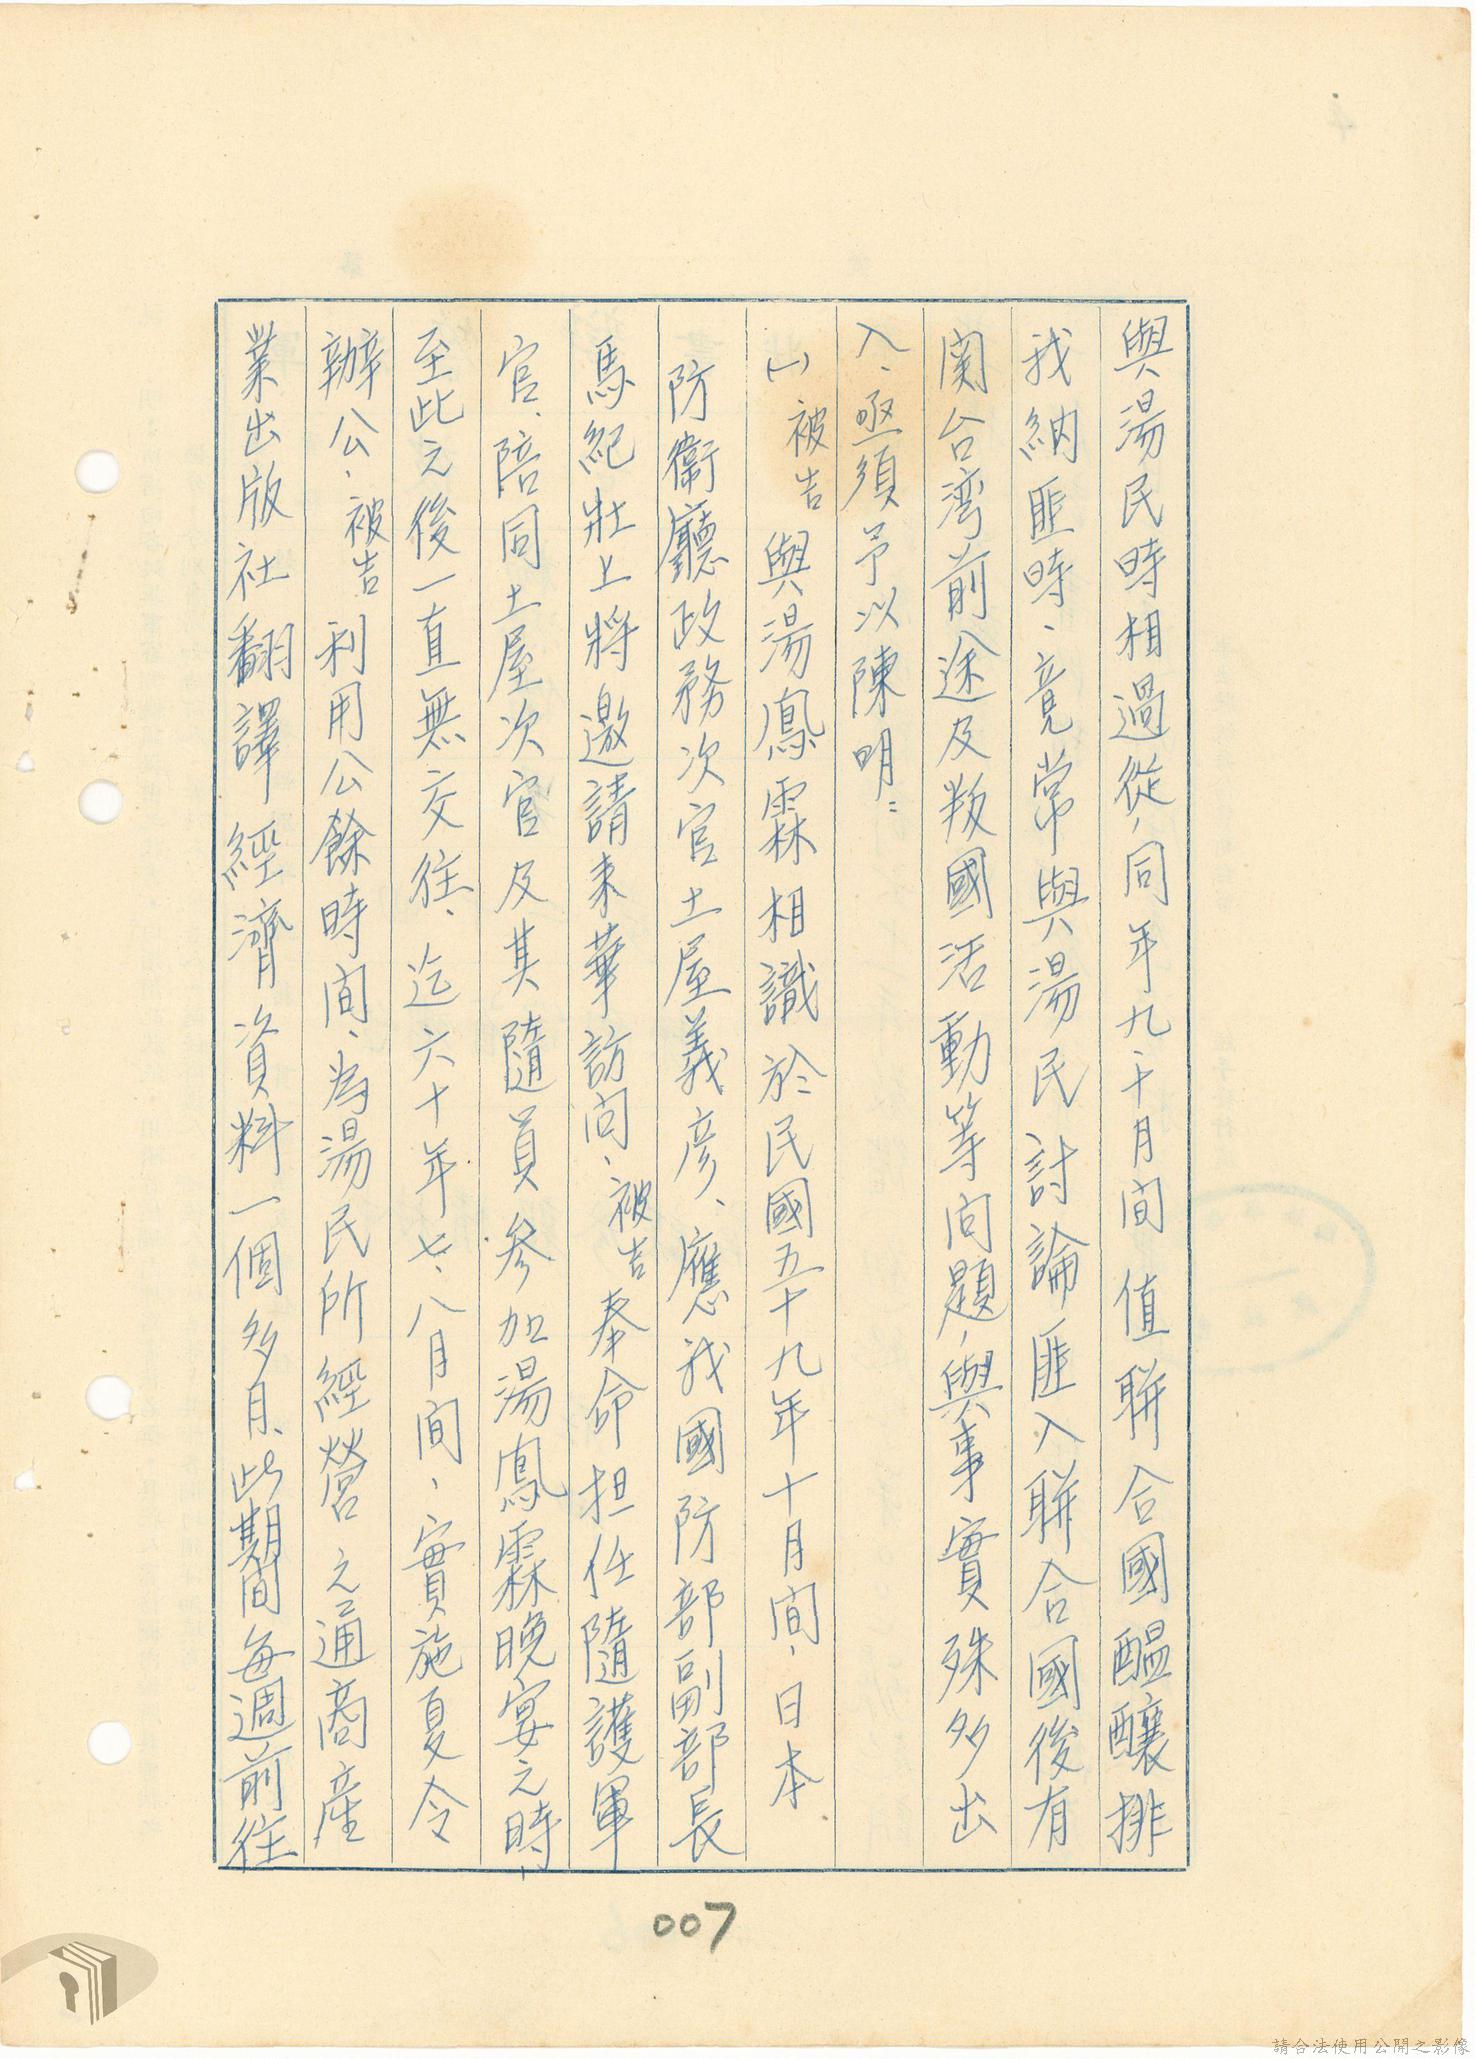 與湯民時相過從,同年九、十月間值聯合國醞釀排
我納匪時、竟常與湯民討論匪入聯合國後有
関台湾前途及叛國活動等问題,與事實殊多出
入、亟須予以陳明:
(一)被告與湯鳳霖相識於民國五十九年十月間,日本
防衛廳政務次官土屋義彦、應我國防部副部長
馬紀壯上將邀請来華訪问、被告奉命担任隨護軍
官、陪同土屋次官及其隨員参加湯鳳霖晚宴之時,
至此之後一直無交往、迄六十年七、八月間,實施夏令
辦公、被告利用公餘時间、為湯民所經營之通商産
業出版社翻譯經濟資料一個多月、此期间每週前往
007
請合法使用公開之影像